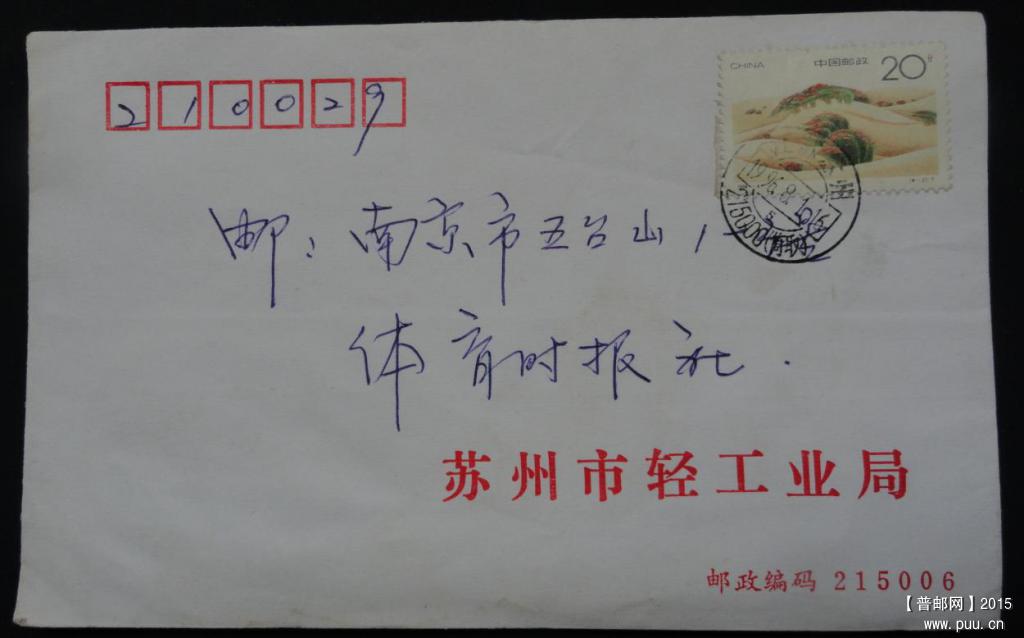 CHINA 中国邮政 20分
210029
邮：南京市五台山1-
体育时报社.
苏州市轻工业局
邮政编码 215006
【普邮网】2015
www.puu.cn